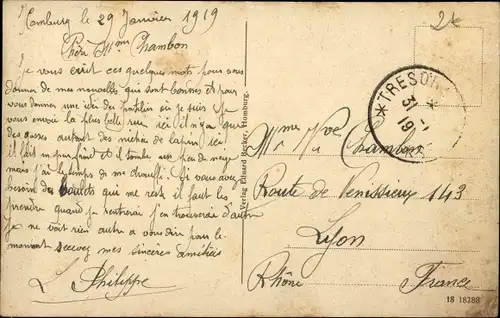 Homburg le 29 Janvier 1919
Chère Mme Chambon
Je vous écrit ces quelques mots pour vous
donner de mes nouvelles qui sont bonnes et pour
vous donner une idée du patelin où je suis je
vous envoie la plus belle rue ici il n'y a que
des autres autant des niches de lapin ici
il fait un peu froid et il tombe un peu de neige
mais j'ai le temps de me chauffé si vous avez
besoin des que me reste il faut les
prendre quand je rentrerai j'en trouverai d'autre
je ne voit rien autre a vous dire pour le
moment recevez mes sincères amitiés
L. Philippe
Verlag Eduard Becker, Homburg.
2€
* TRESOR *
31 -1
19
Mme Vve Chambon
Route de Venissieux 143
Lyon
Rhône France
18 18288